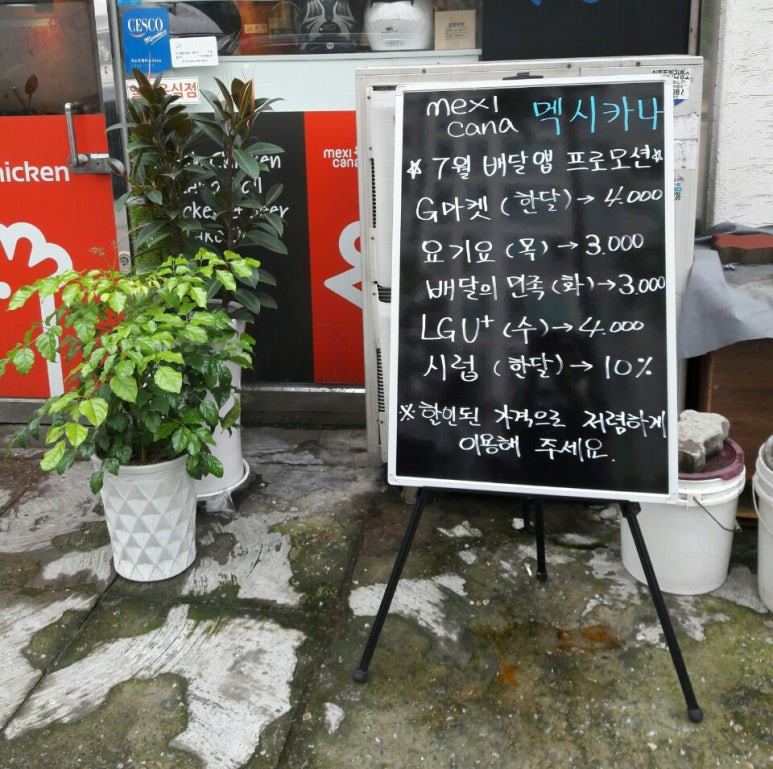 CESCO
Members
hicken
mexi
cana
mexi
cana 멕시카나
※ 7월 배달앱 프로모션※
G마켓 (한달)→ 4.000
요기요 (목) → 3.000
배달의 민족 (화)→3.000
LGU+ (수)→4.000
시럽 (한달) → 10%
※할인된 가격으로 저렴하게
이용해 주세요.